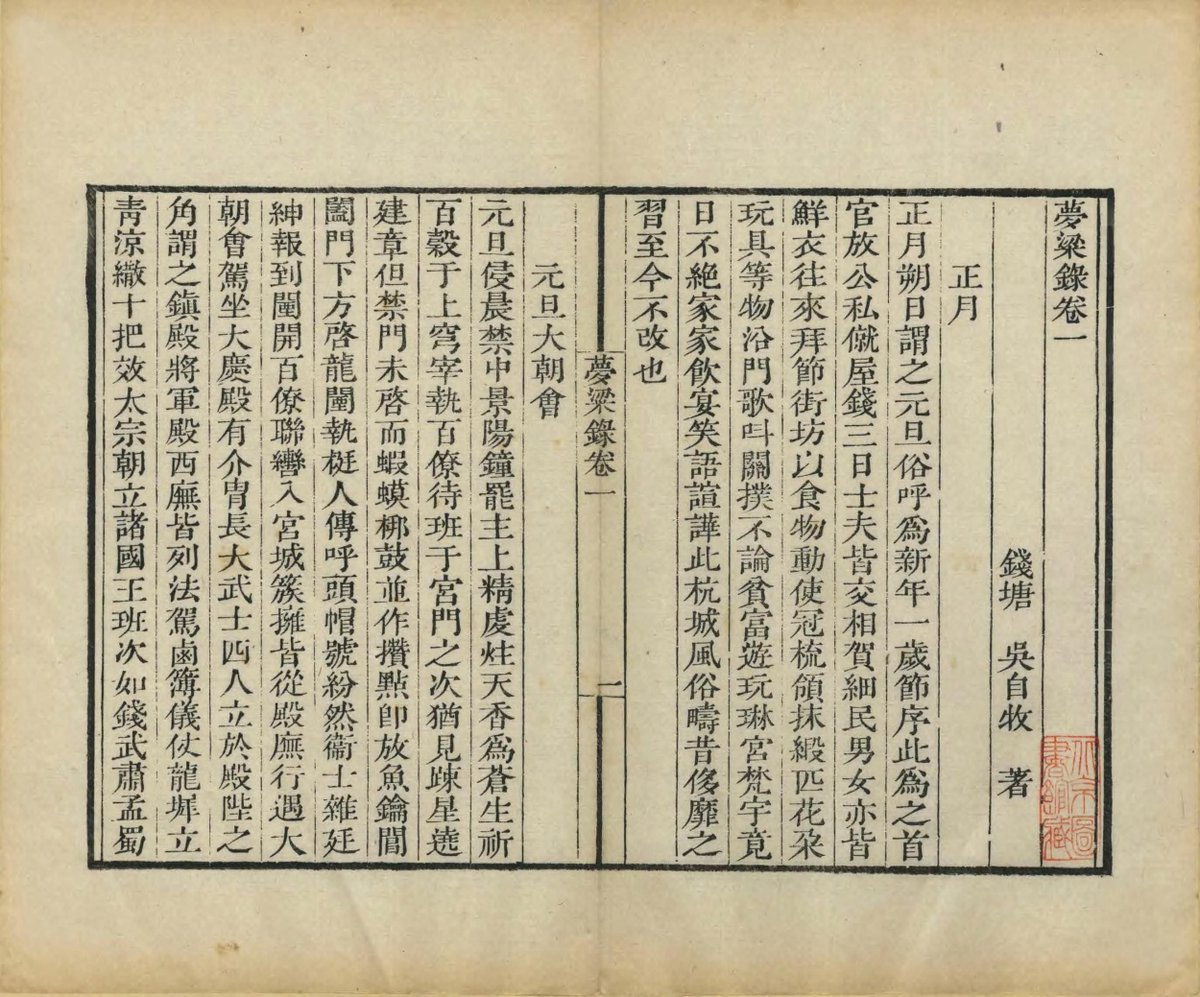 夢粱錄卷一
錢塘 吳自牧 著
正月
正月朔日謂之元旦俗呼爲新年一歲節序此爲之首
官放公私僦屋錢三日士夫皆交相賀細民男女亦皆
鮮衣往來拜節街坊以食物動使冠梳領抹緞匹花朶
玩具等物沿門歌叫關撲不論貧富遊玩琳宮梵宇竟
日不絕家家飮宴笑語諠譁此杭城風俗疇昔侈靡之
習至今不改也
夢粱錄卷一
一
元旦大朝會
元旦侵晨禁中景陽鐘罷主上精虔炷天香爲蒼生祈
百穀于上穹宰執百僚待班于宮門之次猶見疎星遶
建章但禁門未啓而蝦蟆梆鼓並作攢點卽放魚鑰閶
闔門下方啓龍闈執梃人傳呼頭帽號紛然衞士雜廷
紳報到闈開百僚聯轡入宮城簇擁皆從殿廡行遇大
朝會駕坐大慶殿有介胄長大武士四人立於殿陛之
角謂之鎮殿將軍殿西廡皆列法駕鹵簿儀仗龍墀立
靑涼繖十把效太宗朝立諸國王班次如錢武肅孟蜀
北京圖
書館藏